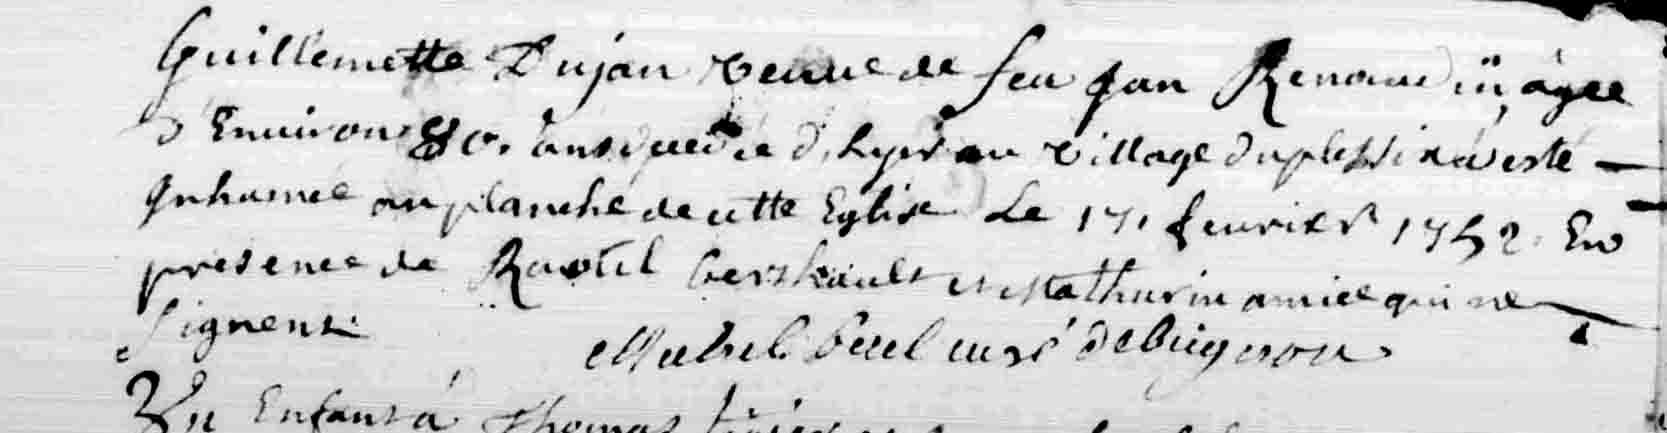 Guillemette Dujan veuve de feu Jan Renaud âgée
d'Environ 80. ans decedée d'hyer au village du plessix a esté
Inhumée au planché de cette Eglise Le 17. feurier 1752. En
presence de Raoul bertheault et Mathurin amice qui ne
signent.
curé de
Un Enfant à Thomas